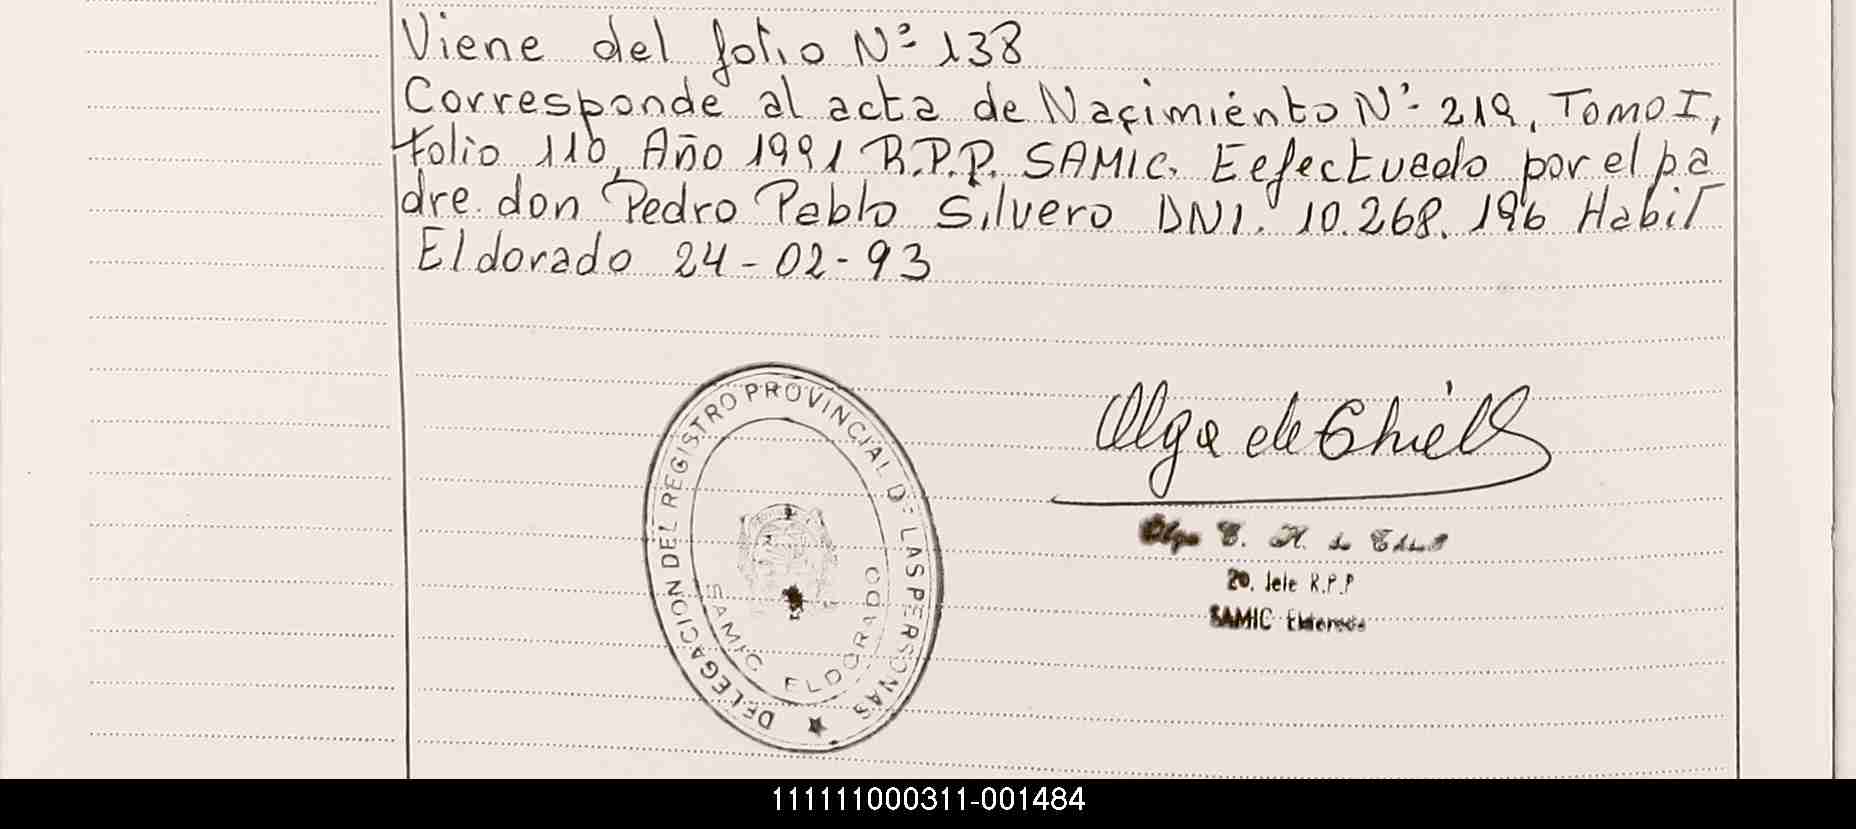 Viene del folio Nº 138
Corresponde al acta de Nacimiento Nº 219, Tomo I,
folio 110, Año 1991 R.P.P. SAMIC. Eefectuado por el pa
dre don Pedro Pablo Silvero DNI. 10.268.196 Habil
Eldorado 24-02-93
DELEGACION DEL REGISTRO PROVINCIAL DE LAS PERSONAS
SAMIC ELDORADO
Olga de
Olga E. H. de
20. Jefe R.P.P
SAMIC Eldorado
111111000311-001484